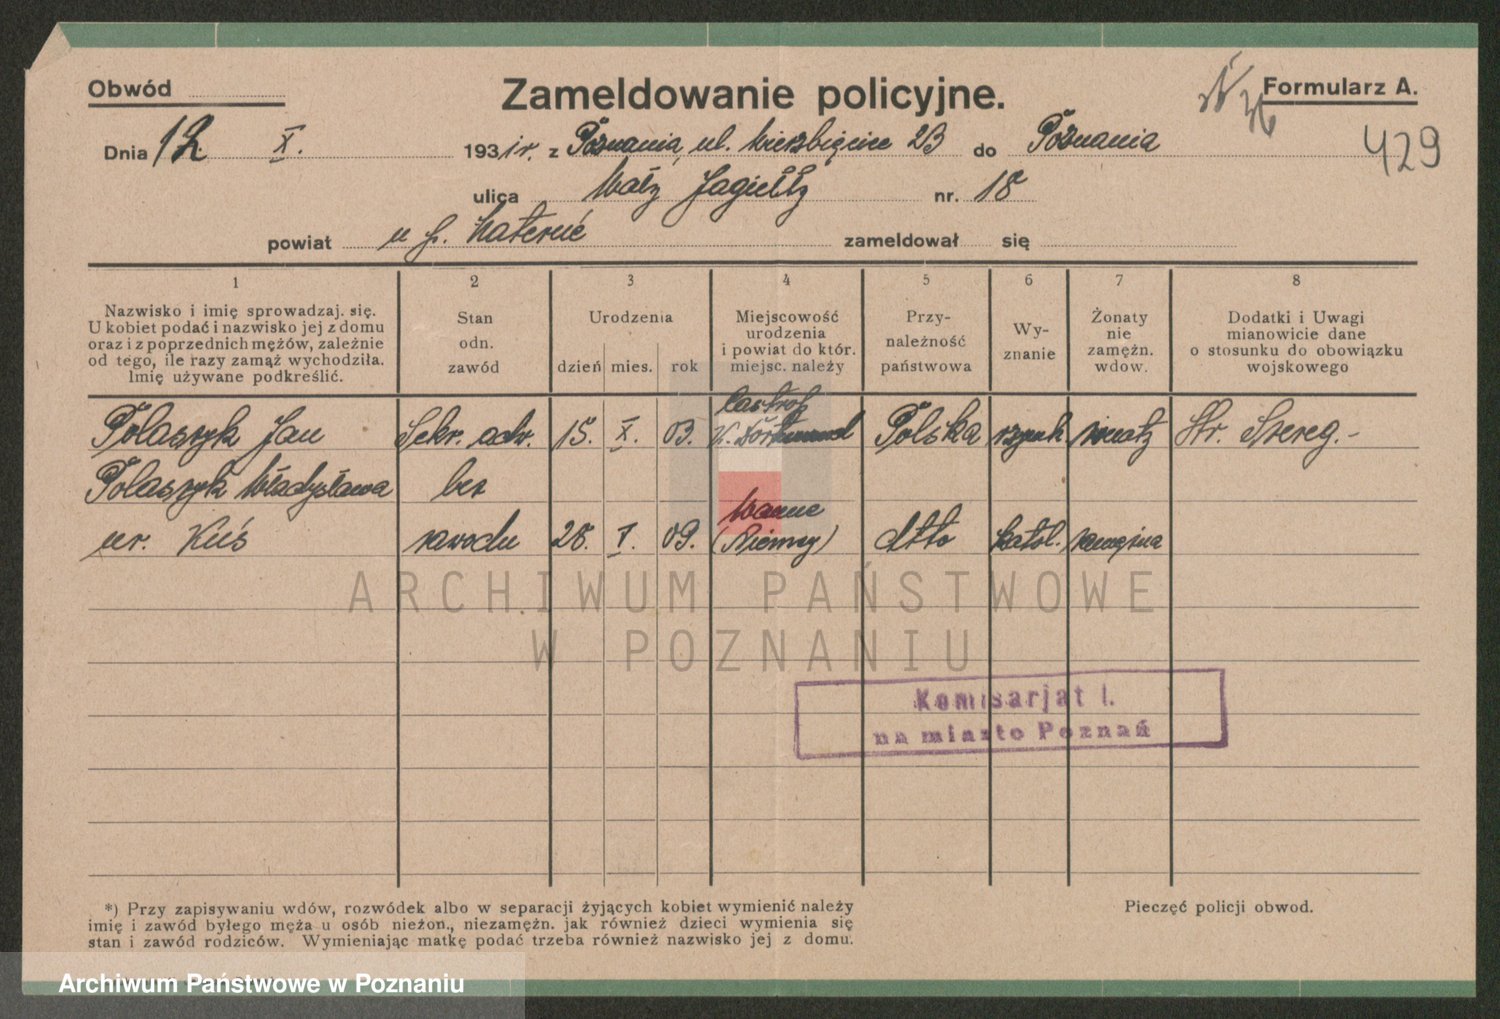 Obwód
Zameldowanie policyjne.
Formularz A.
429
Dnia 12. X. 1931 r. z Poznania, ul. Wierzbięcice 23 do Poznania
ulica Wały Jagiełły nr. 18
powiat u p. zameldował się
1 2 3 4 5 6 7 8
Nazwisko i imię sprowadzaj. się.
U kobiet podać i nazwisko jej z domu
oraz i z poprzednich mężów, zależnie
od tego, ile razy zamąż wychodziła.
Imię używane podkreślić.
Stan
odn.
zawód
Urodzenia
dzień mies. rok
Miejscowość
urodzenia
i powiat do któr.
miejsc. należy
Przy-
należność
państwowa
Wy-
znanie
Żonaty
nie
zamężn.
wdow.
Dodatki i Uwagi
mianowicie dane
o stosunku do obowiązku
wojskowego
Castrop
Polaszyk Jan Sekr. adw. 15. X. 03. Dortmund Polska rzymk żonaty Str. Szereg.-
Polaszyk Władysława bez
Wanne
ur. Kuś zawodu 28. V. 09. (Niemcy) dtto katol. zamężna
ARCHIWUM PAŃSTWOWE
W POZNANIU
Komisarjat I.
na miasto Poznań
*) Przy zapisywaniu wdów, rozwódek albo w separacji żyjących kobiet wymienić należy
imię i zawód byłego męża u osób nieżon., niezamężn. jak również dzieci wymienia się
stan i zawód rodziców. Wymieniając matkę podać trzeba również nazwisko jej z domu.
Pieczęć policji obwod.
Archiwum Państwowe w Poznaniu